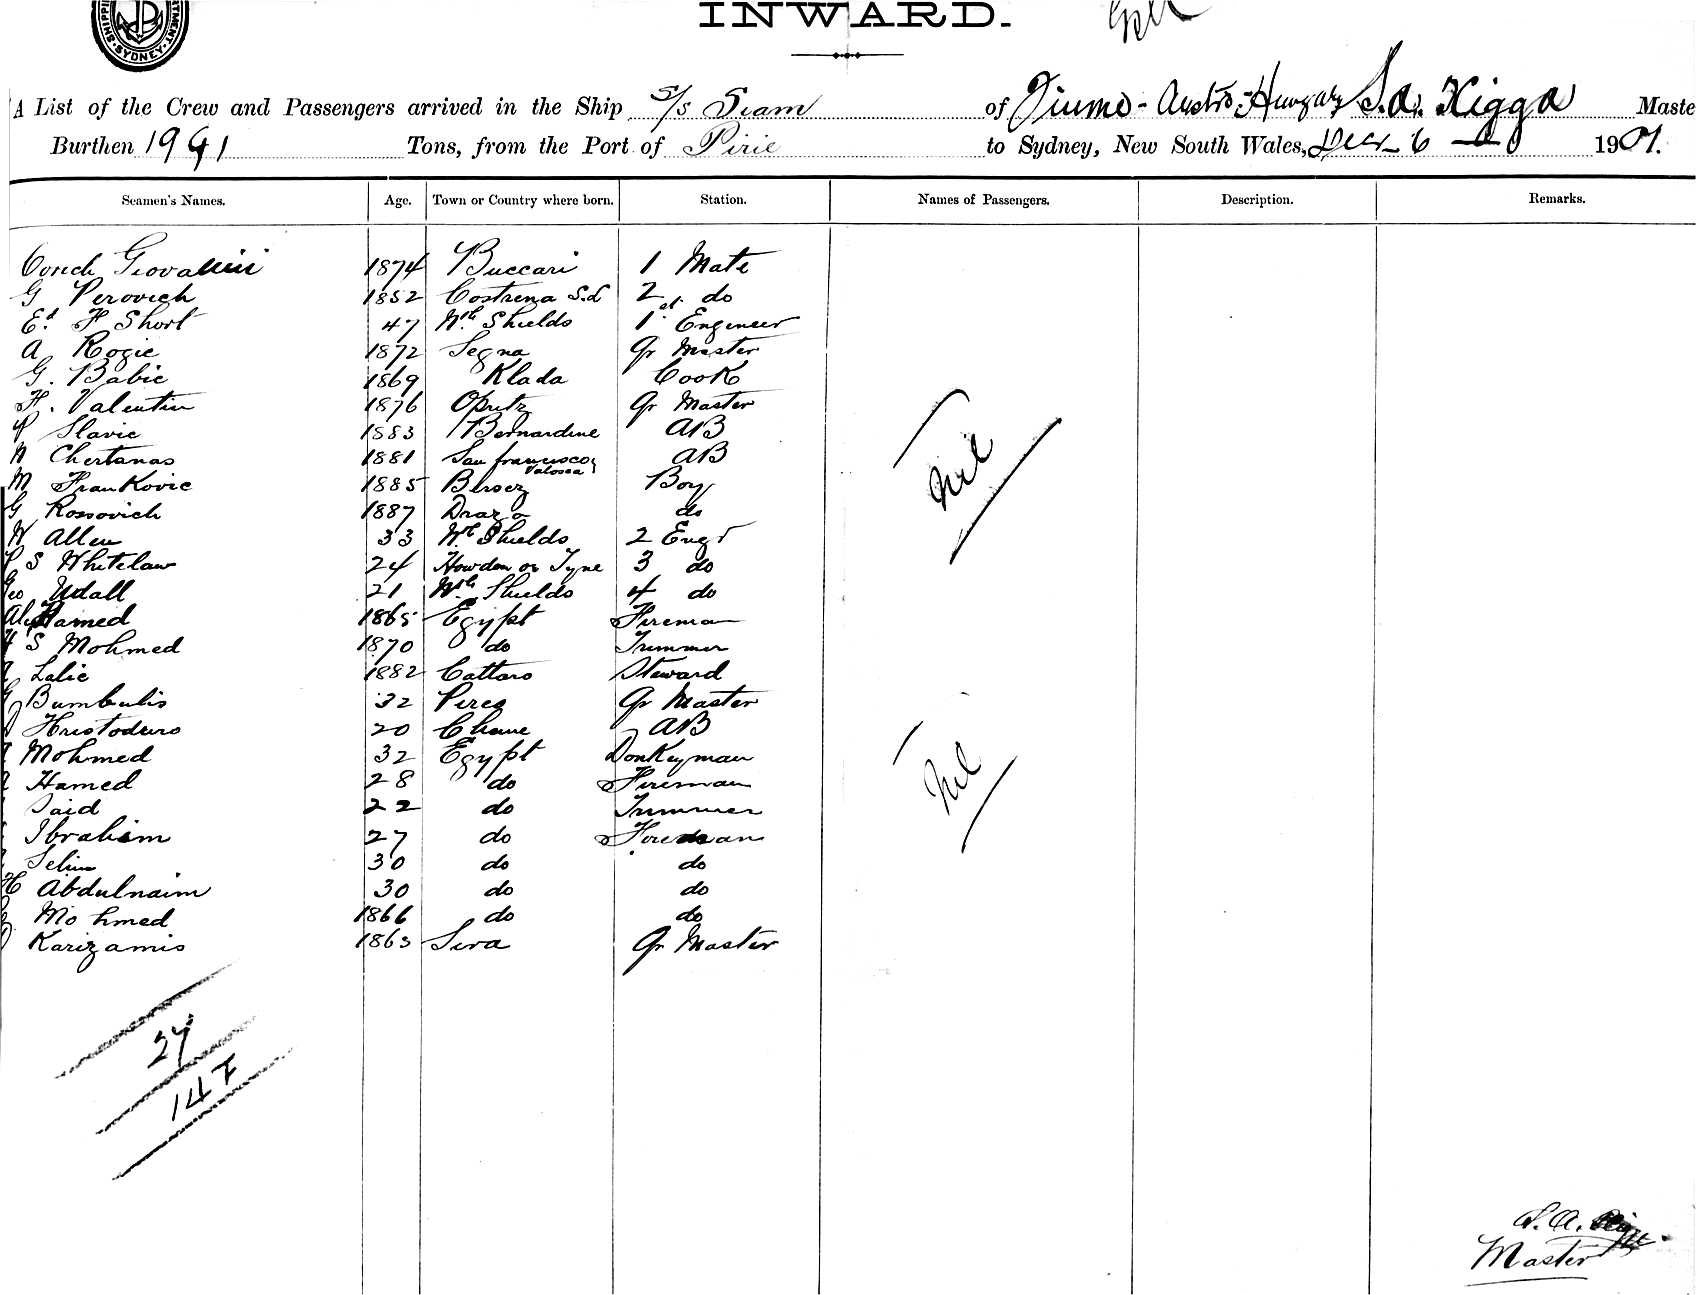 SHIPPI MENT. SYDNEY.
INWARD.
A List of the Crew and Passengers arrived in the Ship S/S Siam of Fiume - Austro-Hungary S. A. Xigga Maste
Burthen 1991 Tons, from the Port of Pirie to Sydney, New South Wales, Decr 6 1901.
Seamen's Names. Age. Town or Country where born. Station. Names of Passengers. Description. Remarks.
Giovanni 1874 Buccari 1 Mate
G Perovich 1852 Costrena S.L 2 do
Ed. F Short 47 Nth Shields 1st Engineer
A Rogic 1872 Segna Qr Master
G. Babic 1869 Klada Cook
F. Valentin 1876 Qr Master
P Slavic 1883 Bernardine AB
N Chertanas 1881 San francisco AB
M Frankovic 1885 Bersez Boy
G Rossovich 1887 Draga do
W Allen 33 Nth Shields 2 Engr
S Whitelaw 24 Howdon on Tyne 3 do
Geo Udall 21 Nth Shields 4 do
Aly Hamed 1865 Egypt Fireman
S Mohmed 1870 do Trimmer
Lalic 1882 Cattaro Steward
G Bumbulis 32 Pireo Qr Master
Hristoduro 20 AB
Mohmed 32 Egypt Donkeyman
Hamed 28 do Fireman
Said 22 do Trimmer
Ibrahim 27 do Fireman
Selim 30 do do
H Abdulnaim 30 do do
Mohmed 1866 do do
Karizamis 1863 Sira Qr Master
Nil
Nil
27
147
S. A.
Master